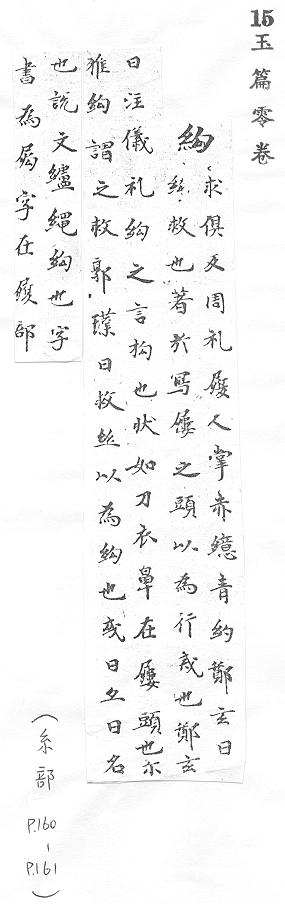 15 玉篇零卷
絇 求俱反周礼屨人掌赤繶青約鄭玄曰
絲救也著於舄屨之頭以為行戒也鄭玄
曰注儀礼絇之言拘也狀如刀衣鼻在屨頭也尓
雅絇謂之救郭璞曰救絲以為絇也或曰亦曰名
也說文纑繩絇也字
書為𡲬字在履部
(糸部 P.160-P.161)